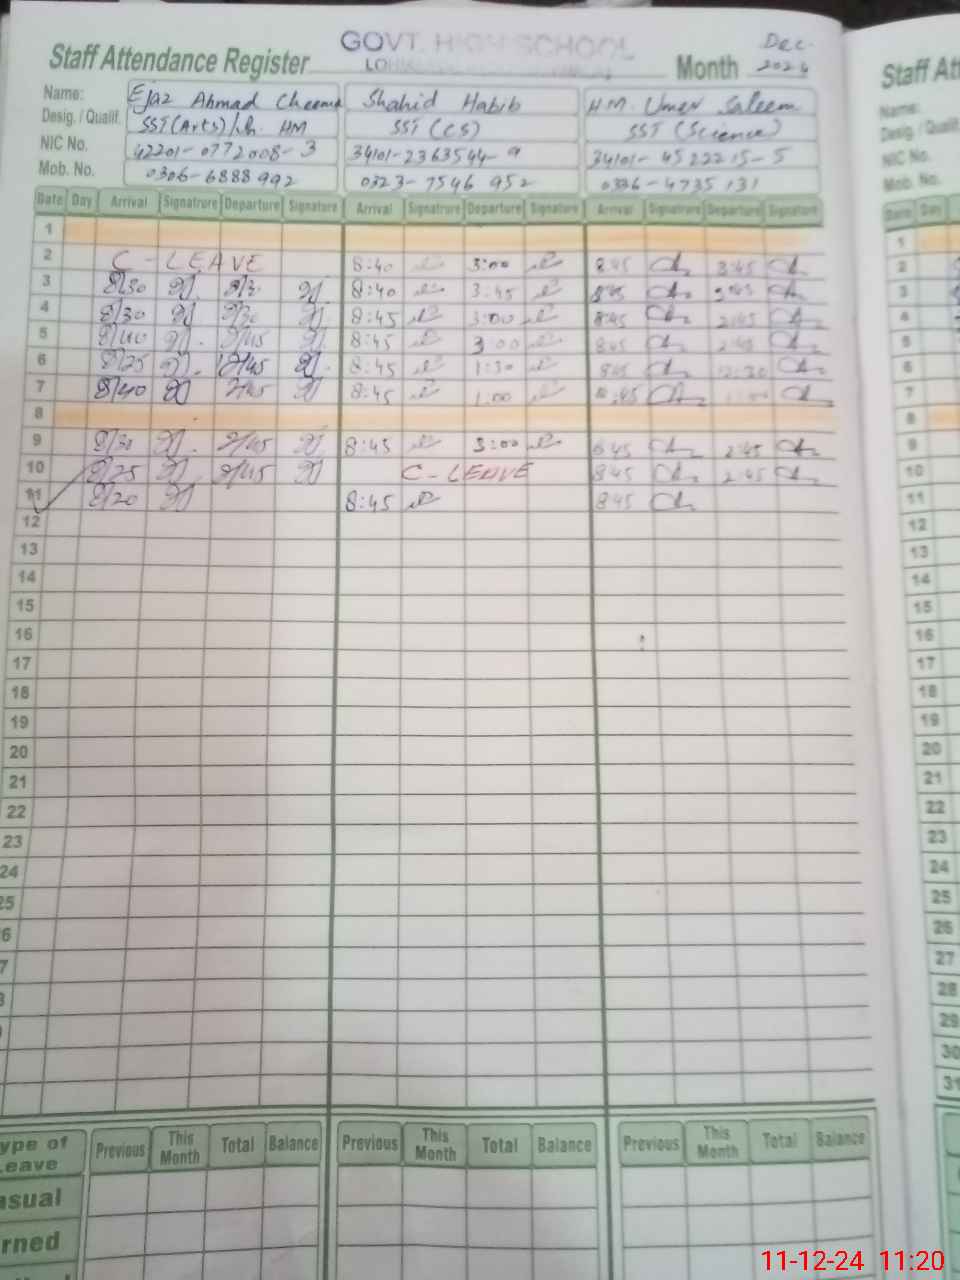 GOVT. HIGH SCHOOL
Staff Attendance Register Month Dec. 2024
Name: Ejaz Ahmad Cheema Shahid Habib H.M. Umer Saleem
Desig. / Qualif. SST (Arts) HM SST (CS) SST (Science)
NIC No. 42201-0772008-3 34101-2363544-9 34101-4522215-5
Mob. No. 0306-6888992 0323-7546952 0336-4735131
Date Day Arrival Signatrure Departure Signature Arrival Signatrure Departure Signature Arrival Signatrure Departure Signature
1
2 C-LEAVE 8:40 3:00 845
3 8/30 8:40 3:45
4 8/30 8:45 3:00 845 2:45
5 8/40 8:45 3:00 845 2:45
6 8/25 8:45 1:30 845 12:30
7 8/40 8:45 1:00
8
9 8/30 8:45 3:00 2:45
10 8/25 C-LEAVE 845 2:45
11 8/20 8:45 845
12
13
14
15
16
17
18
19
20
21
22
23
24
25
6
7
Type of Leave Previous This Month Total Balance Previous This Month Total Balance Previous This Month Total Balance
asual
rned
Staff Att
Name:
Desig. / Qualif
NIC No.
Mob. No.
Date Day
1
2
3
4
5
6
7
8
9
10
11
12
13
14
15
16
17
18
19
20
21
22
23
24
25
26
27
28
29
30
31
11-12-24 11:20